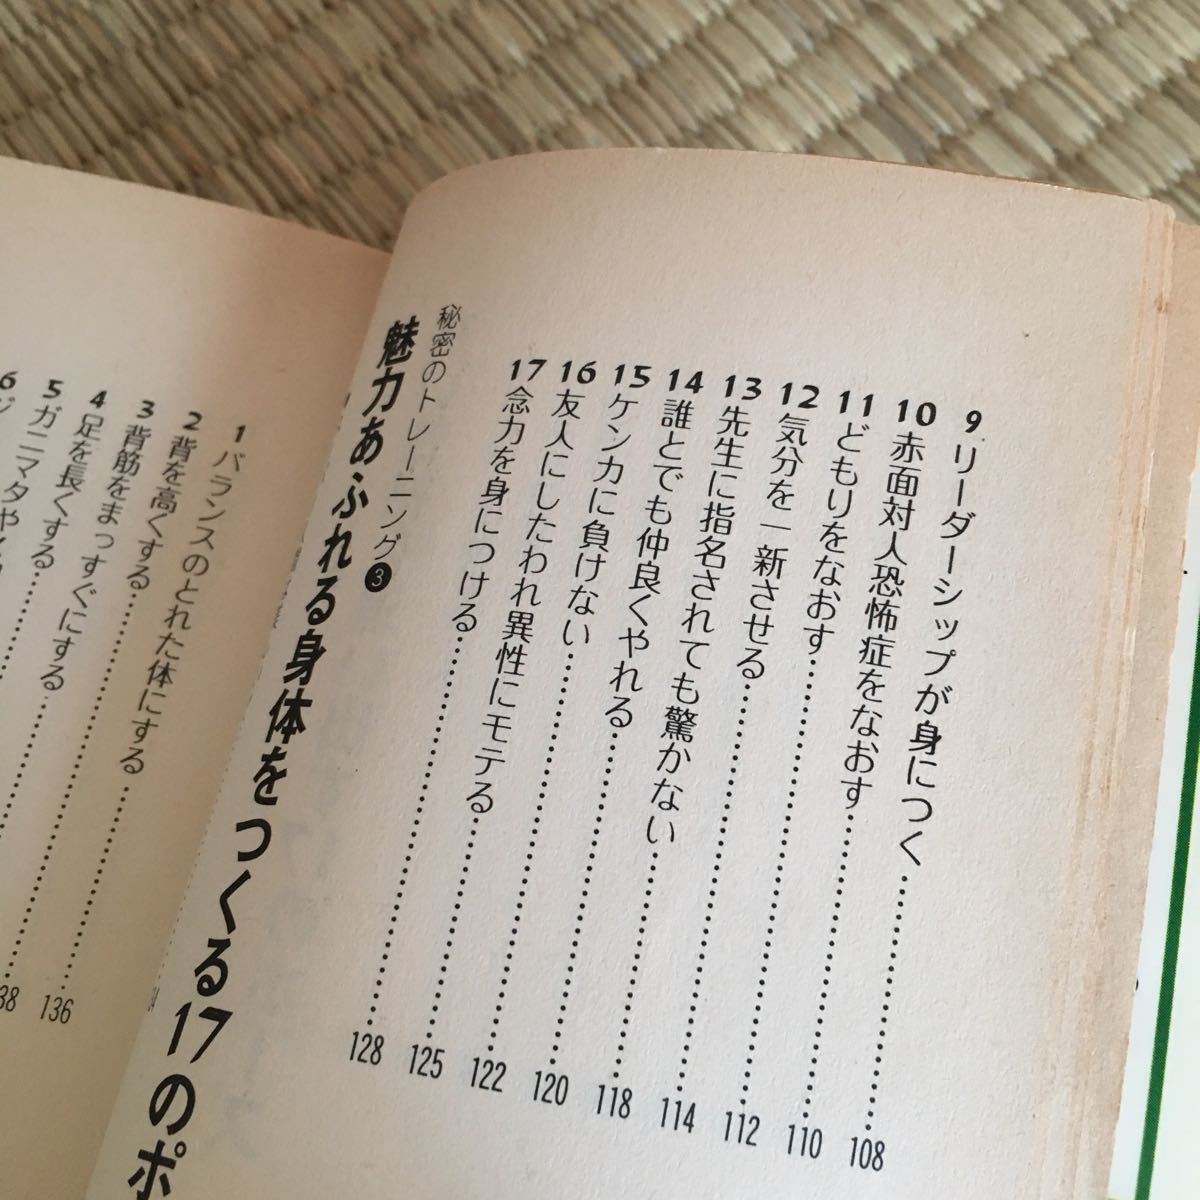 9 リーダーシップが身につく……108
10 赤面対人恐怖症をなおす……110
11 どもりをなおす……112
12 気分を一新させる……114
13 先生に指名されても驚かない……118
14 誰とでも仲良くやれる……120
15 ケンカに負けない……122
16 友人にしたわれ異性にモテる……125
17 念力を身につける……128
秘密のトレーニング❸
魅力あふれる身体をつくる17のポ
1 バランスのとれた体にする
2 背を高くする
3 背筋をまっすぐにする
4 足を長くする……136
5 ガニマタや
6
38